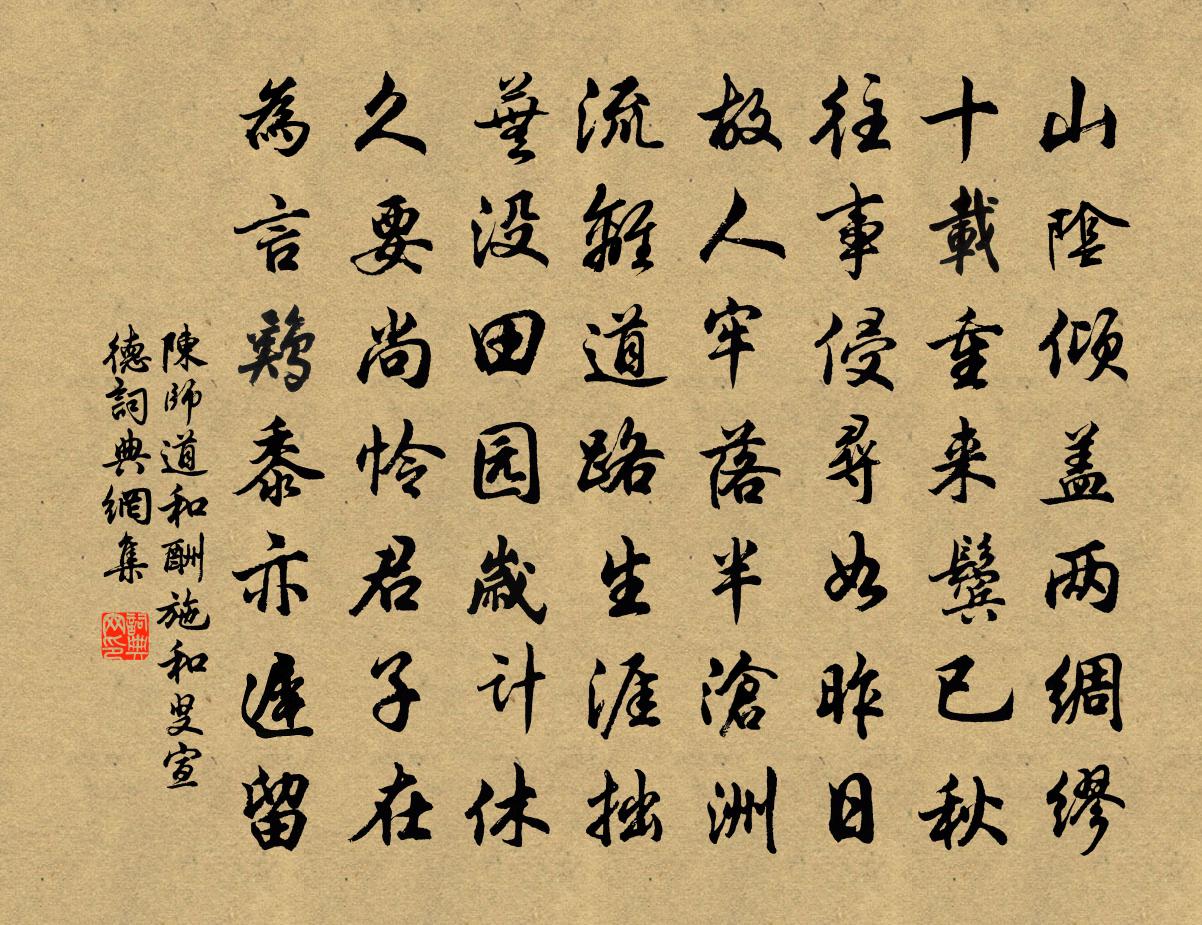 山陰倾盖两綢缪
十載重来鬓已秋
往事侵尋如昨日
故人牢落半滄洲
流離道路生涯拙
蕪没田园歳计休
久要尚怜君子在
為言鷄黍亦遲留
陳師道和酬施和叟宣
德詞典網集
詞典网印